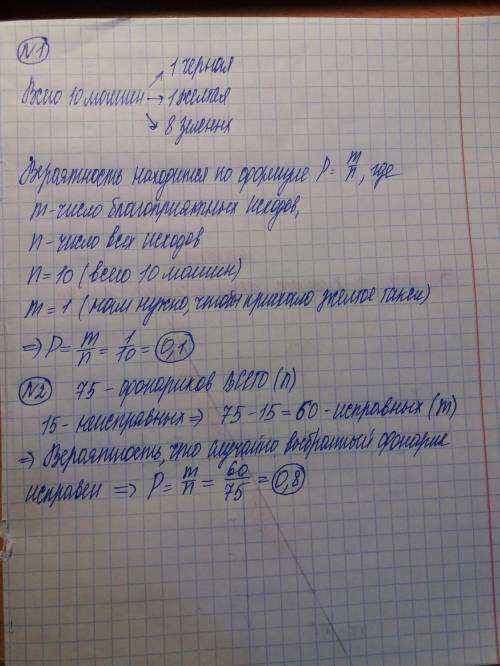 N1
1 черная
Всего 10 машин → 1 желтая
8 зеленых
Вероятность находится по формуле P = m/n, где
m - число благоприятных исходов,
n - число всех исходов
n = 10 (всего 10 машин)
m = 1 (нам нужно, чтобы приехало желтое такси)
⇒ P = m/n = 1/10 = 0,1
N2 75 - фонариков ВСЕГО (n)
15 - неисправных ⇒ 75 - 15 = 60 - исправных (m)
⇒ Вероятность, что случайно выбранный фонарик
исправен ⇒ P = m/n = 60/75 = 0,8